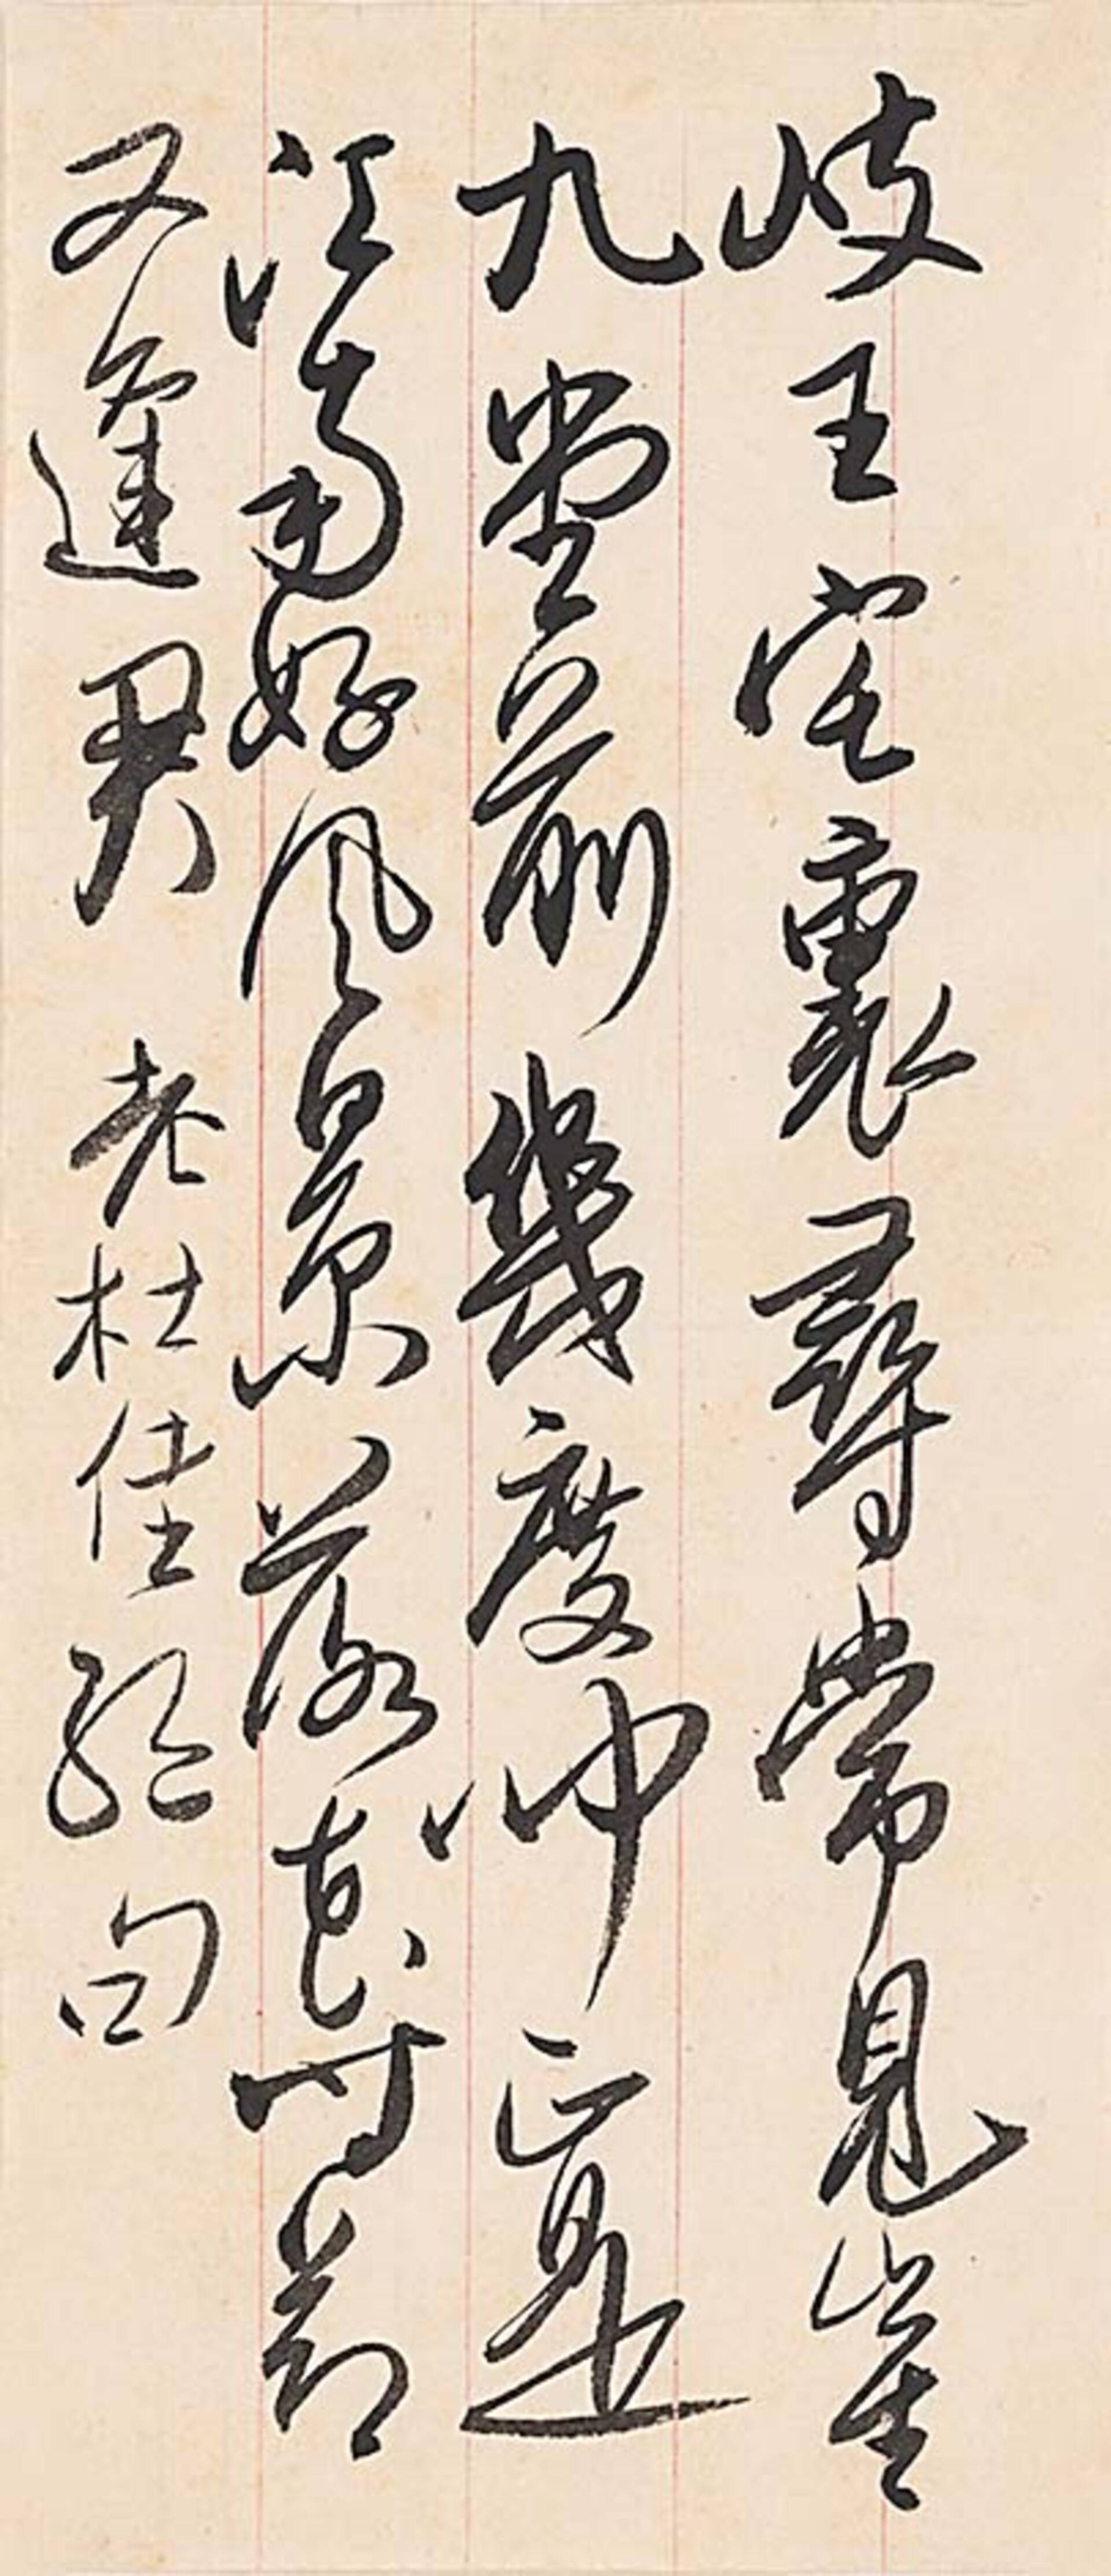 岐王宅裏尋常見崔
九堂前幾度聞正是
江南好風景落花時節
又逢君 老杜佳絕句